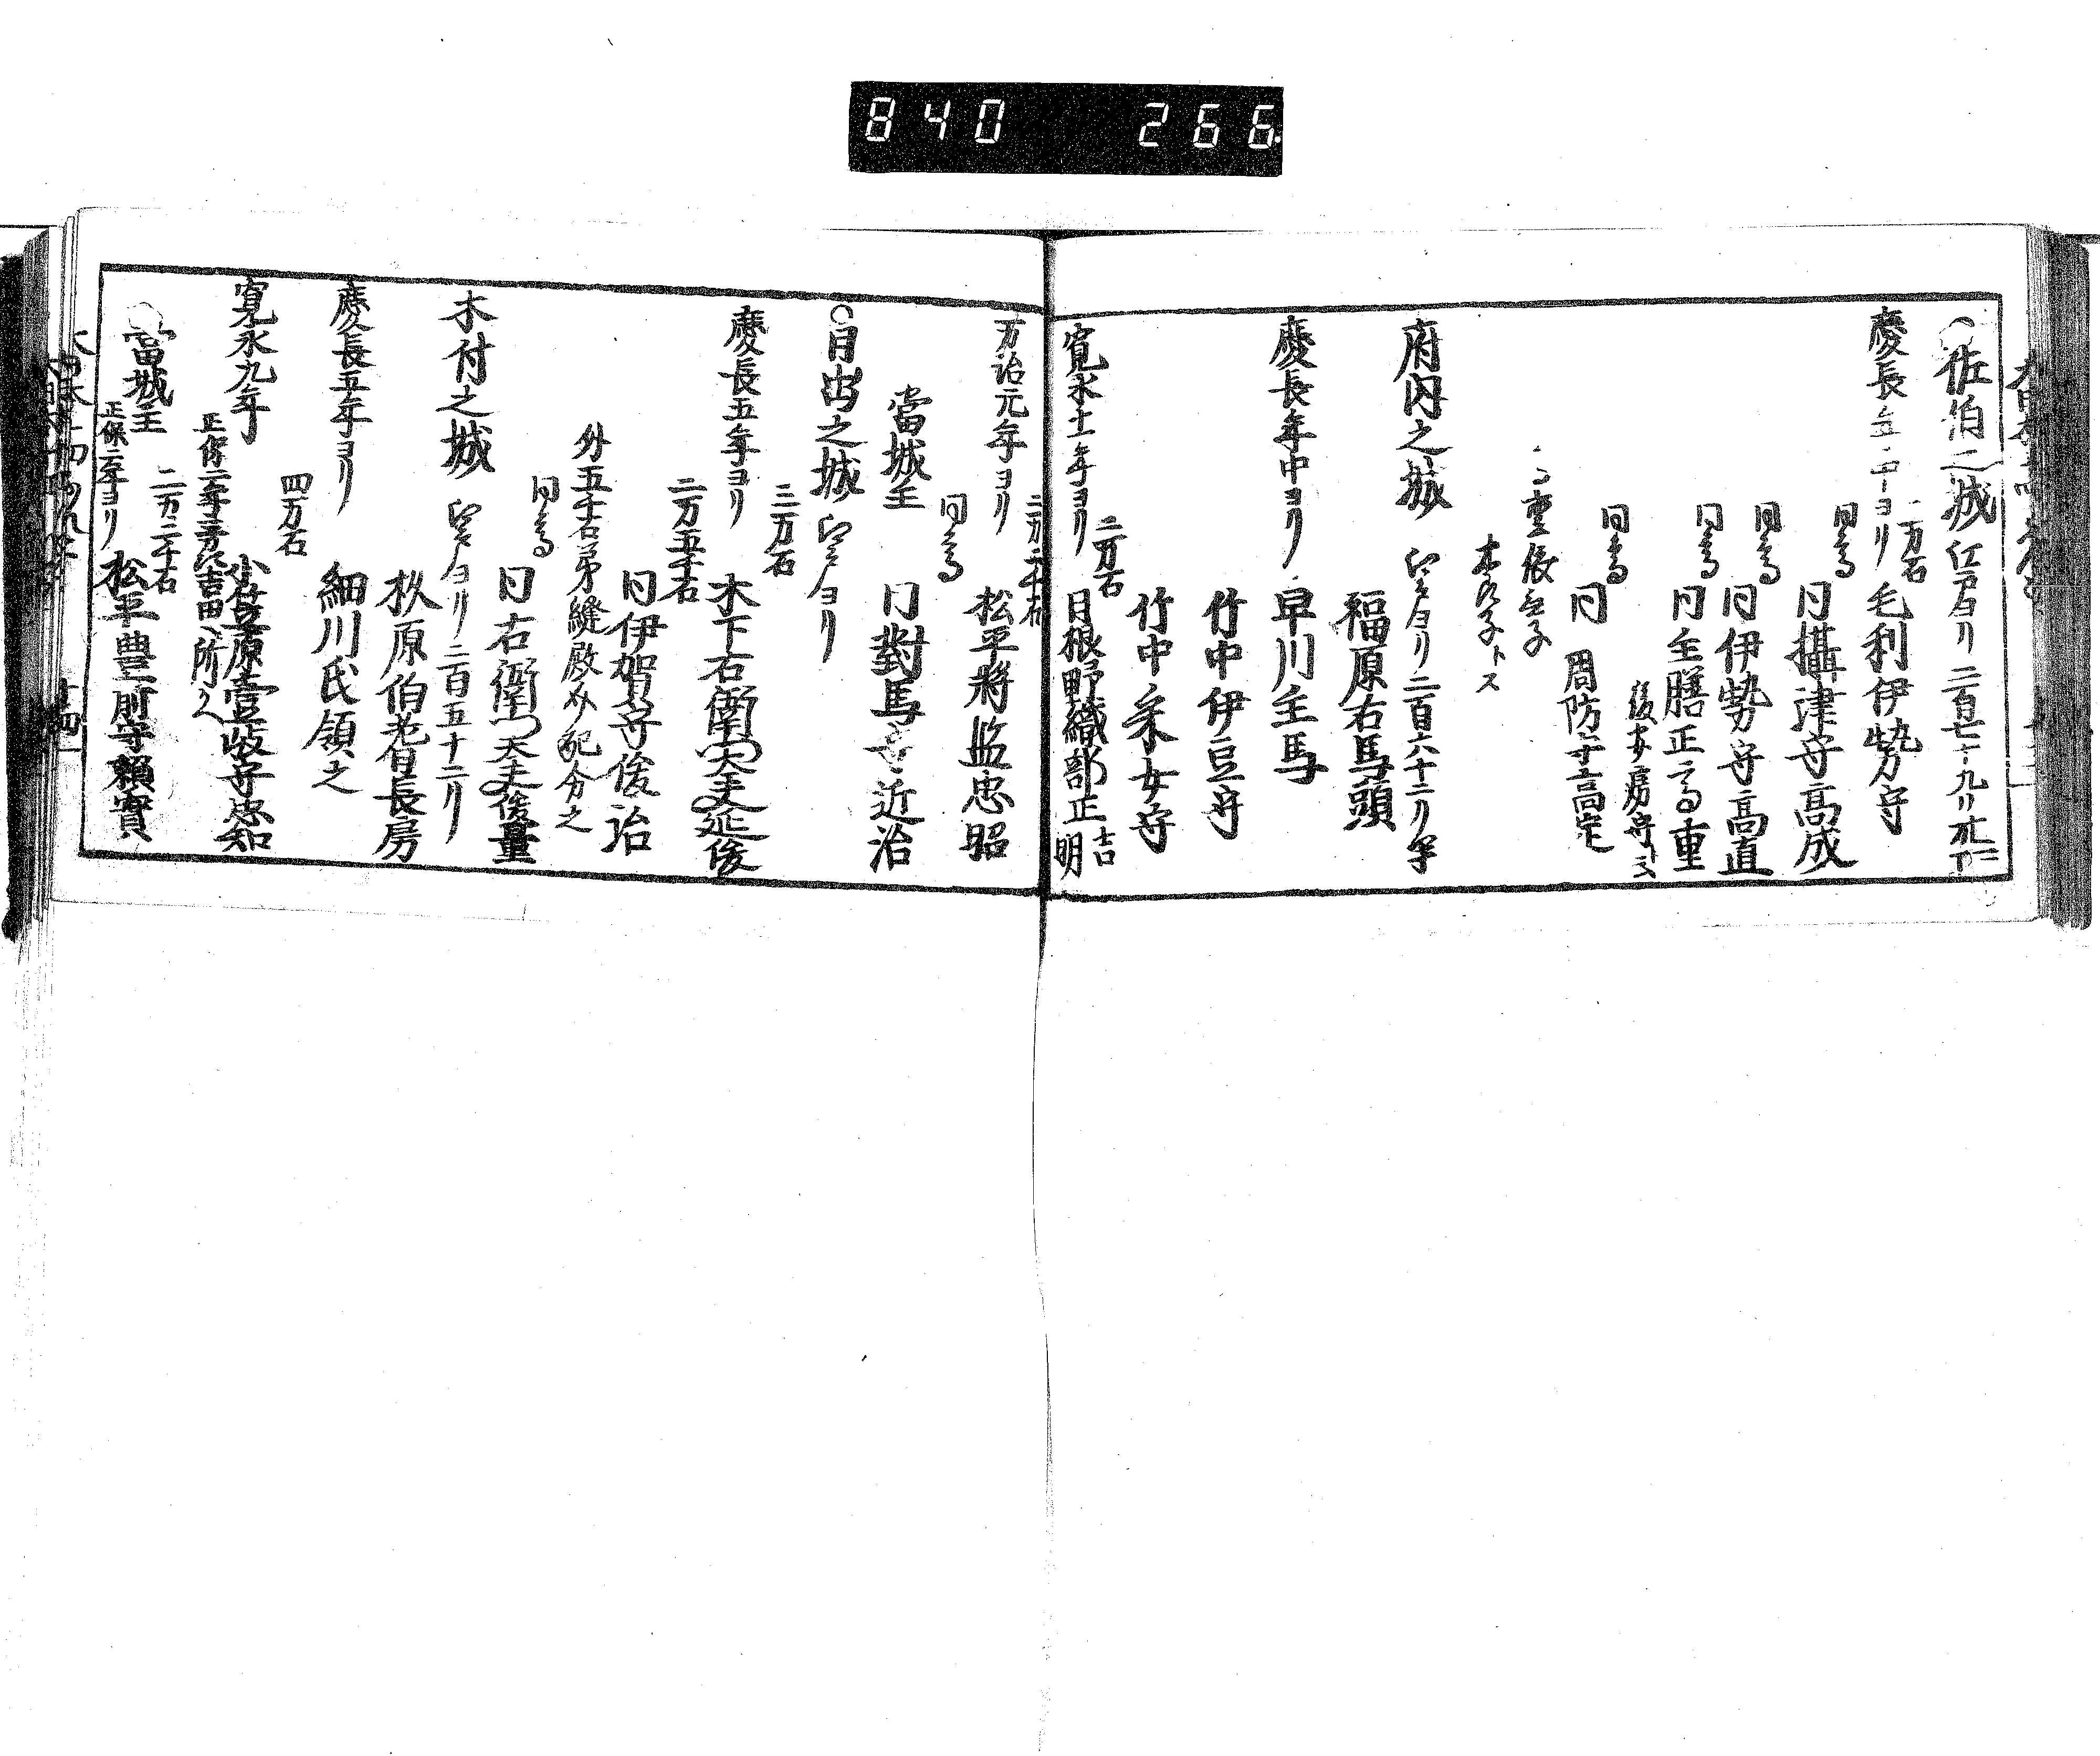 840 266
佐伯之城 江戸ヨリ二百七十九リ
慶長 中ヨリ
二万石 毛利伊勢守
同高 同攝津守高成
同高 同伊勢守高直
同高 同主膳正高重
後安房守トス
同高 同 周防守高定
高重依無子
木 子トス
府内之城 江戸ヨリ二百六十二リ半
福原右馬頭
慶長年中ヨリ 早川主馬
竹中伊豆守
竹中采女守
二万石
寛永十一年ヨリ 日根野織部正吉明
二万二千石
万治元年ヨリ 松平將監忠昭
同高
當城主 同對馬守近治
○日出之城 江戸ヨリ
三万石
慶長五年ヨリ 木下右衛門大夫延俊
二万五千石
同伊賀守俊治
外五千石弟縫殿介配分之
同高
同右衛門大夫俊量
木付之城 江戸ヨリ二百五十二リ
杦原伯耆守長房
慶長五年ヨリ 細川氏領之
四万石
寛永九年 小笠原壹岐守忠知
正保二年三州吉田へ所替
二万二千石
當城主 正保二年ヨリ 松平豊前守頼實